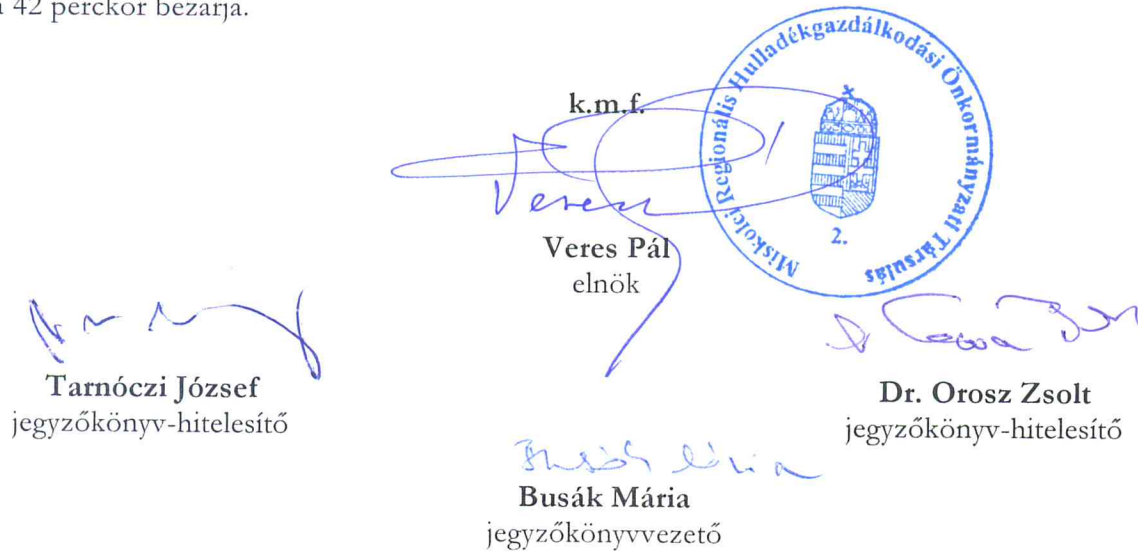 42 perckor bezárja.
k.m.f.
Miskolci Regionális Hulladékgazdálkodási Önkormányzati Társulás
2.
Veres
Veres Pál
elnök
Tarnóczi József
jegyzőkönyv-hitelesítő
Dr. Orosz Zsolt
jegyzőkönyv-hitelesítő
Busák Mária
Busák Mária
jegyzőkönyvvezető